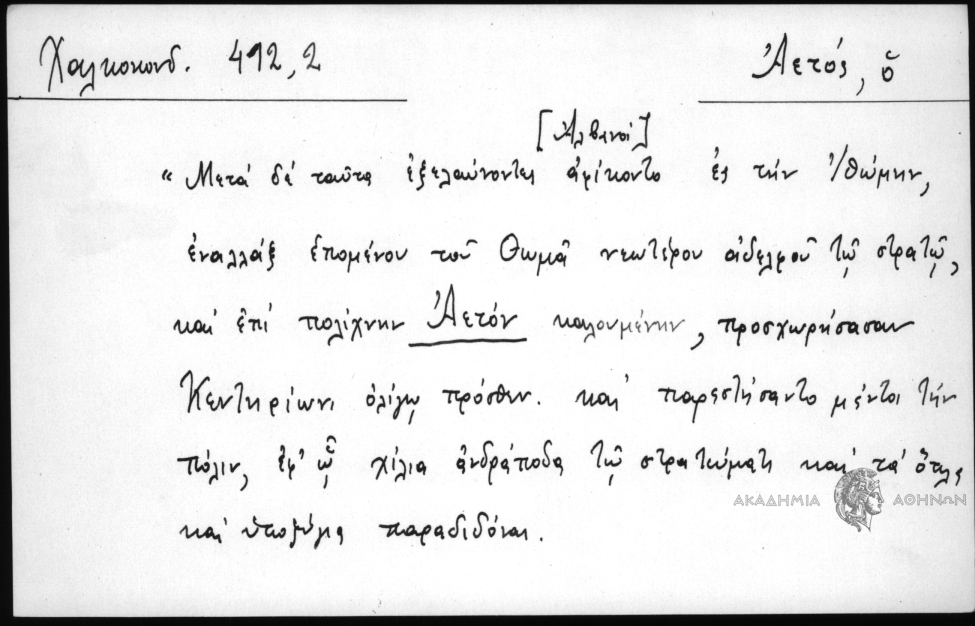 Χαλκοκονδ. 412,2
Ἀετός, ὁ
[Ἀλβανοί]
“Μετά δέ ταῦτα ἐξελαύνοντες ἀφίκοντο ἐς τήν Ἰθώμην,
ἐναλλάξ ἑπομένου τοῦ Θωμᾶ νεωτέρου ἀδελφοῦ τῷ στρατῷ,
καί ἐπί πολίχνην Ἀετόν καλουμένην, προσχωρήσασαν
Κεντηρίωνι ὀλίγῳ πρόσθεν. καί παρεστήσαντο μέντοι τήν
πόλιν, ἐφ’ ᾧ χίλια ἀνδράποδα τῷ στρατεύματι καί τά ὅπλα
ΑΚΑΔΗΜΙΑ ΑΘΗΝΩΝ
καί ὑποζύγια παραδιδόναι.